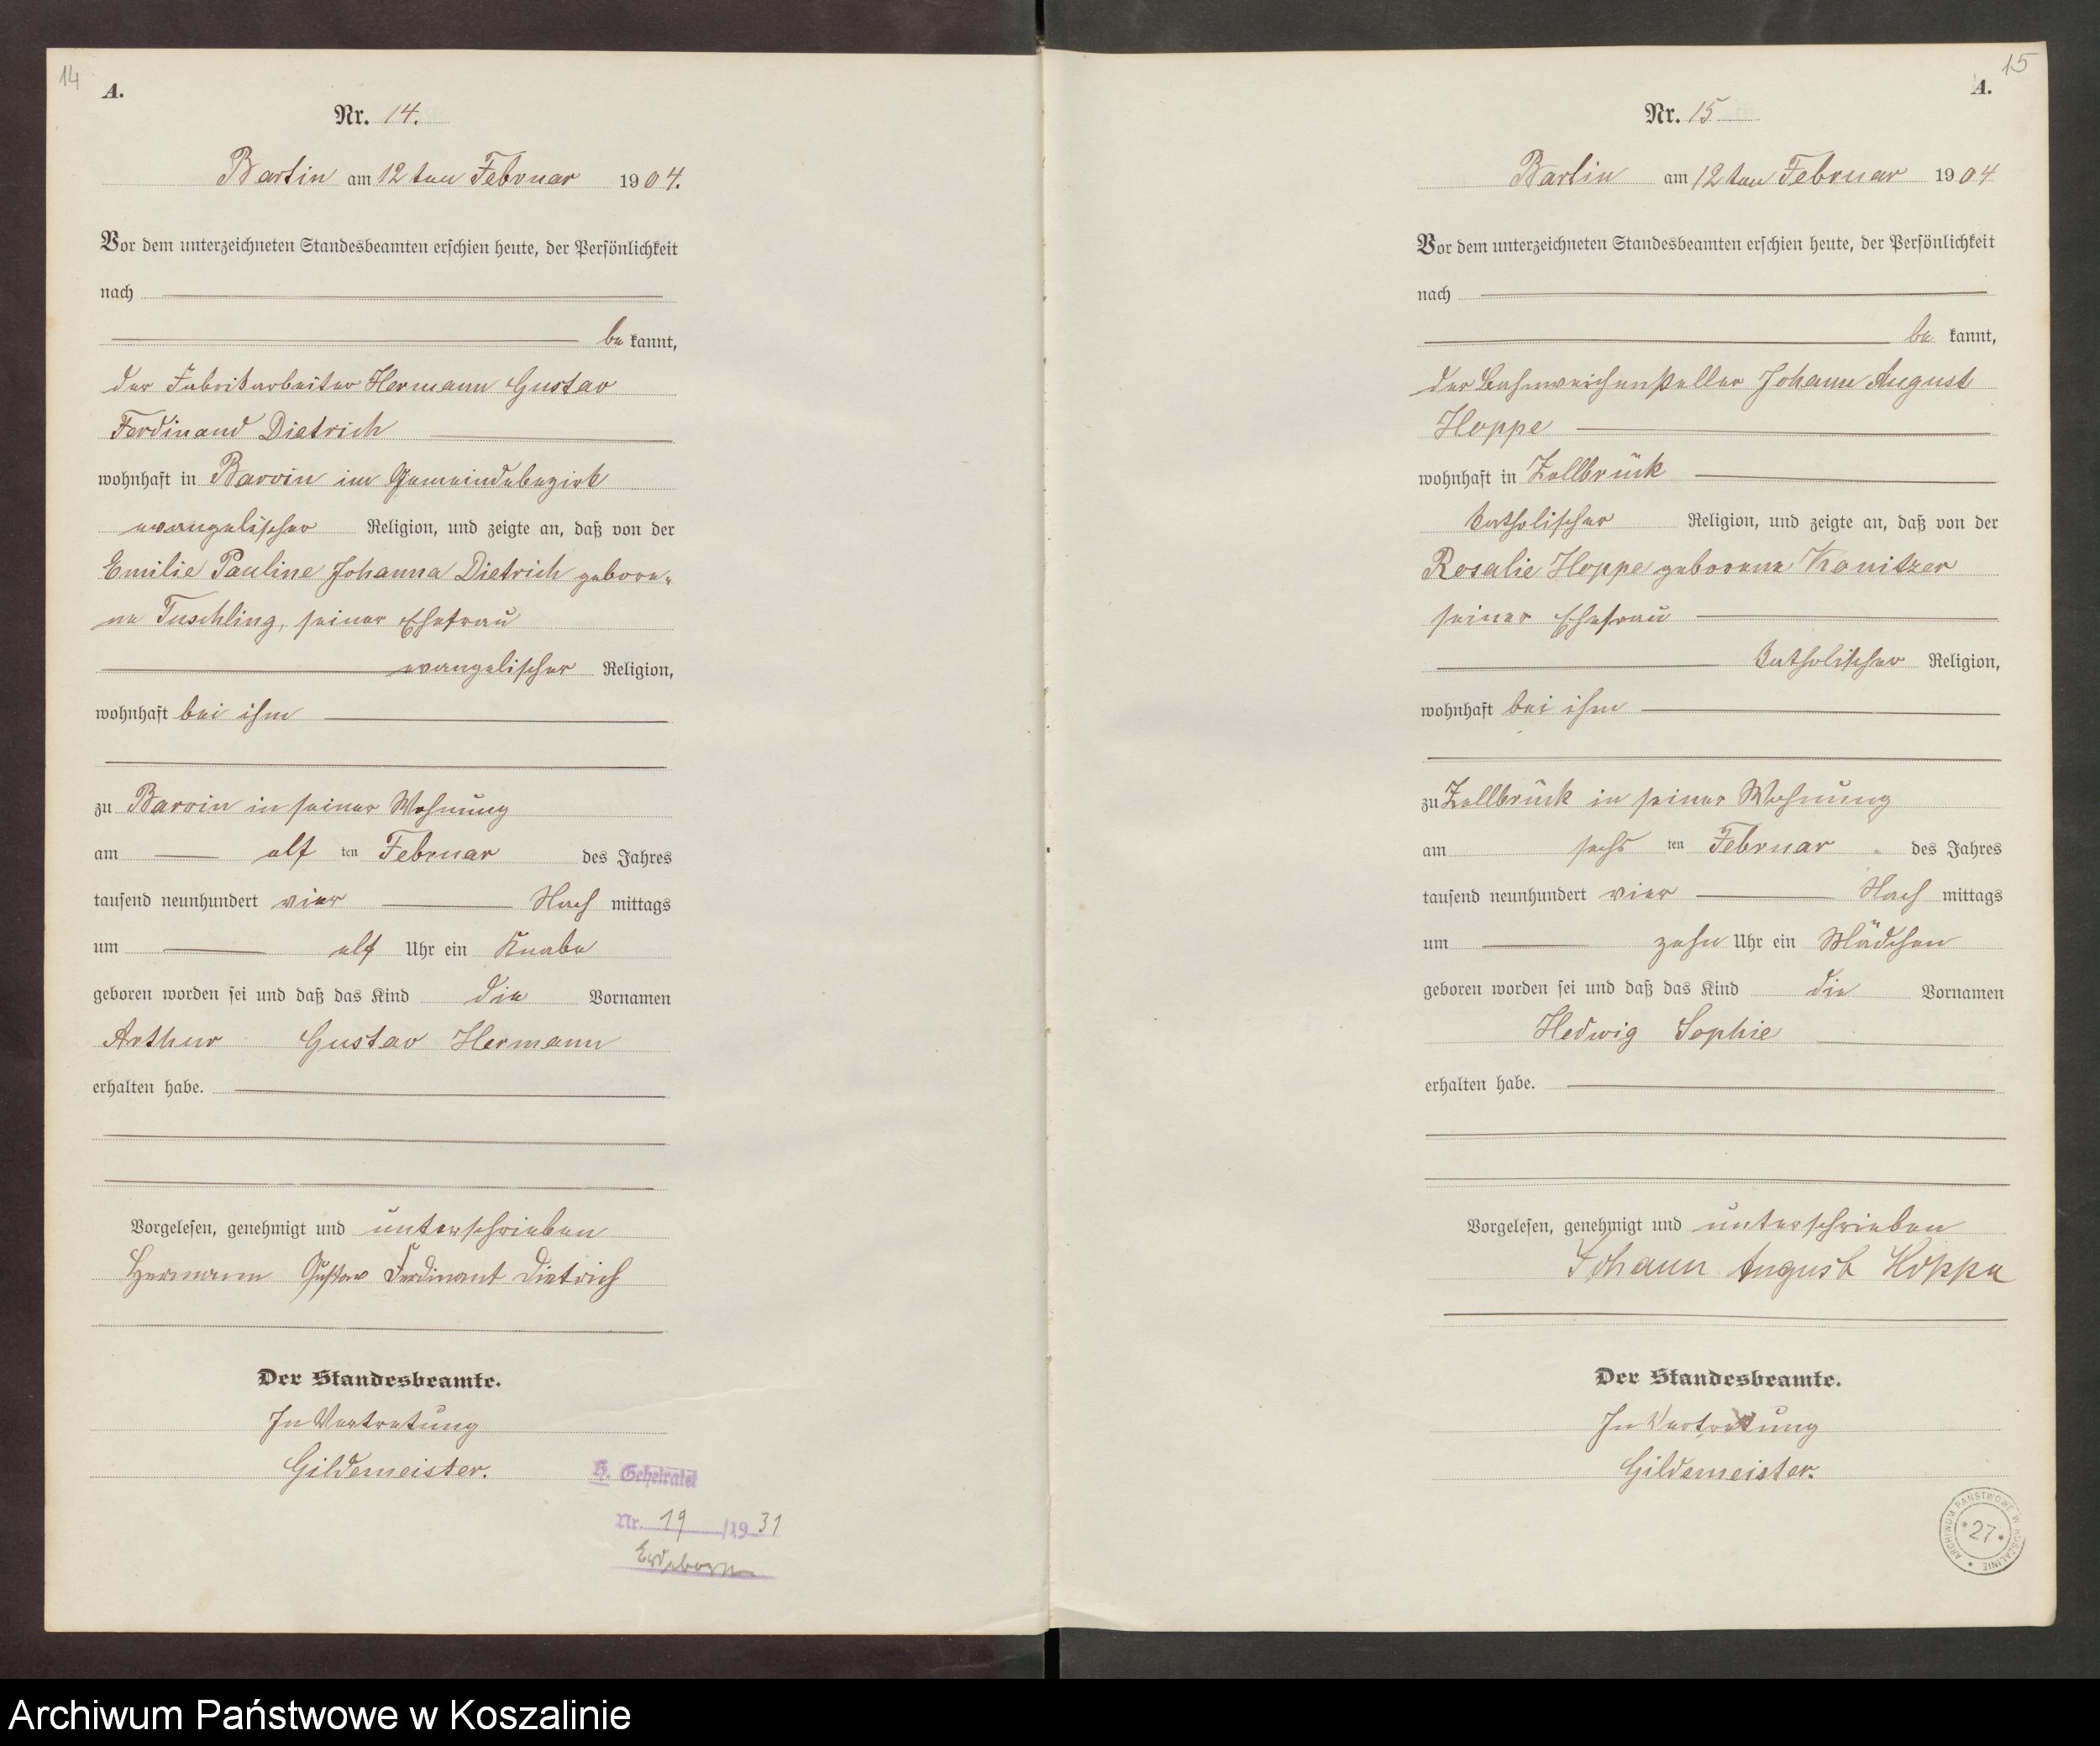 14
A.
Nr. 14.
Bartin am 12ten Februar 1904.
Vor dem unterzeichneten Standesbeamten erschien heute, der Persönlichkeit
nach
be kannt,
der Fabrikarbeiter Hermann Gustav
Ferdinand Dietrich
wohnhaft in Barvin im Gemeindebezirk
evangelischer Religion, und zeigte an, daß von der
Emilie Pauline Johanna Dietrich gebore-
ne Tuschling, seiner Ehefrau
evangelischer Religion,
wohnhaft bei ihm
zu Barvin in seiner Wohnung
am elf ten Februar des Jahres
tausend neunhundert vier Nach mittags
um elf Uhr ein Knabe
geboren worden sei und daß das Kind die Vornamen
Arthur Gustav Hermann
erhalten habe.
Vorgelesen, genehmigt und unterschrieben
Hermann Gustav Ferdinant Dietrich
Der Standesbeamte.
In Vertretung
Gildemeister.
H. Geheiratet
Nr. 19 /1931
15
A.
Nr. 15
Bartin am 12ten Februar 1904
Vor dem unterzeichneten Standesbeamten erschien heute, der Persönlichkeit
nach
be kannt,
der Bahnweichensteller Johann August
Hoppe
wohnhaft in Zollbrück
katholischer Religion, und zeigte an, daß von der
Rosalie Hoppe geborene Kanitzer
seiner Ehefrau
katholischer Religion,
wohnhaft bei ihm
zu Zollbrück in seiner Wohnung
am sechs ten Februar des Jahres
tausend neunhundert vier Nach mittags
um zehn Uhr ein Mädchen
geboren worden sei und daß das Kind die Vornamen
Hedwig Sophie
erhalten habe.
Vorgelesen, genehmigt und unterschrieben
Johann August Hoppe
Der Standesbeamte.
In Vertretung
Gildemeister.
ARCHIWUM PAŃSTWOWE W KOSZALINIE
* 27 *
Archiwum Państwowe w Koszalinie